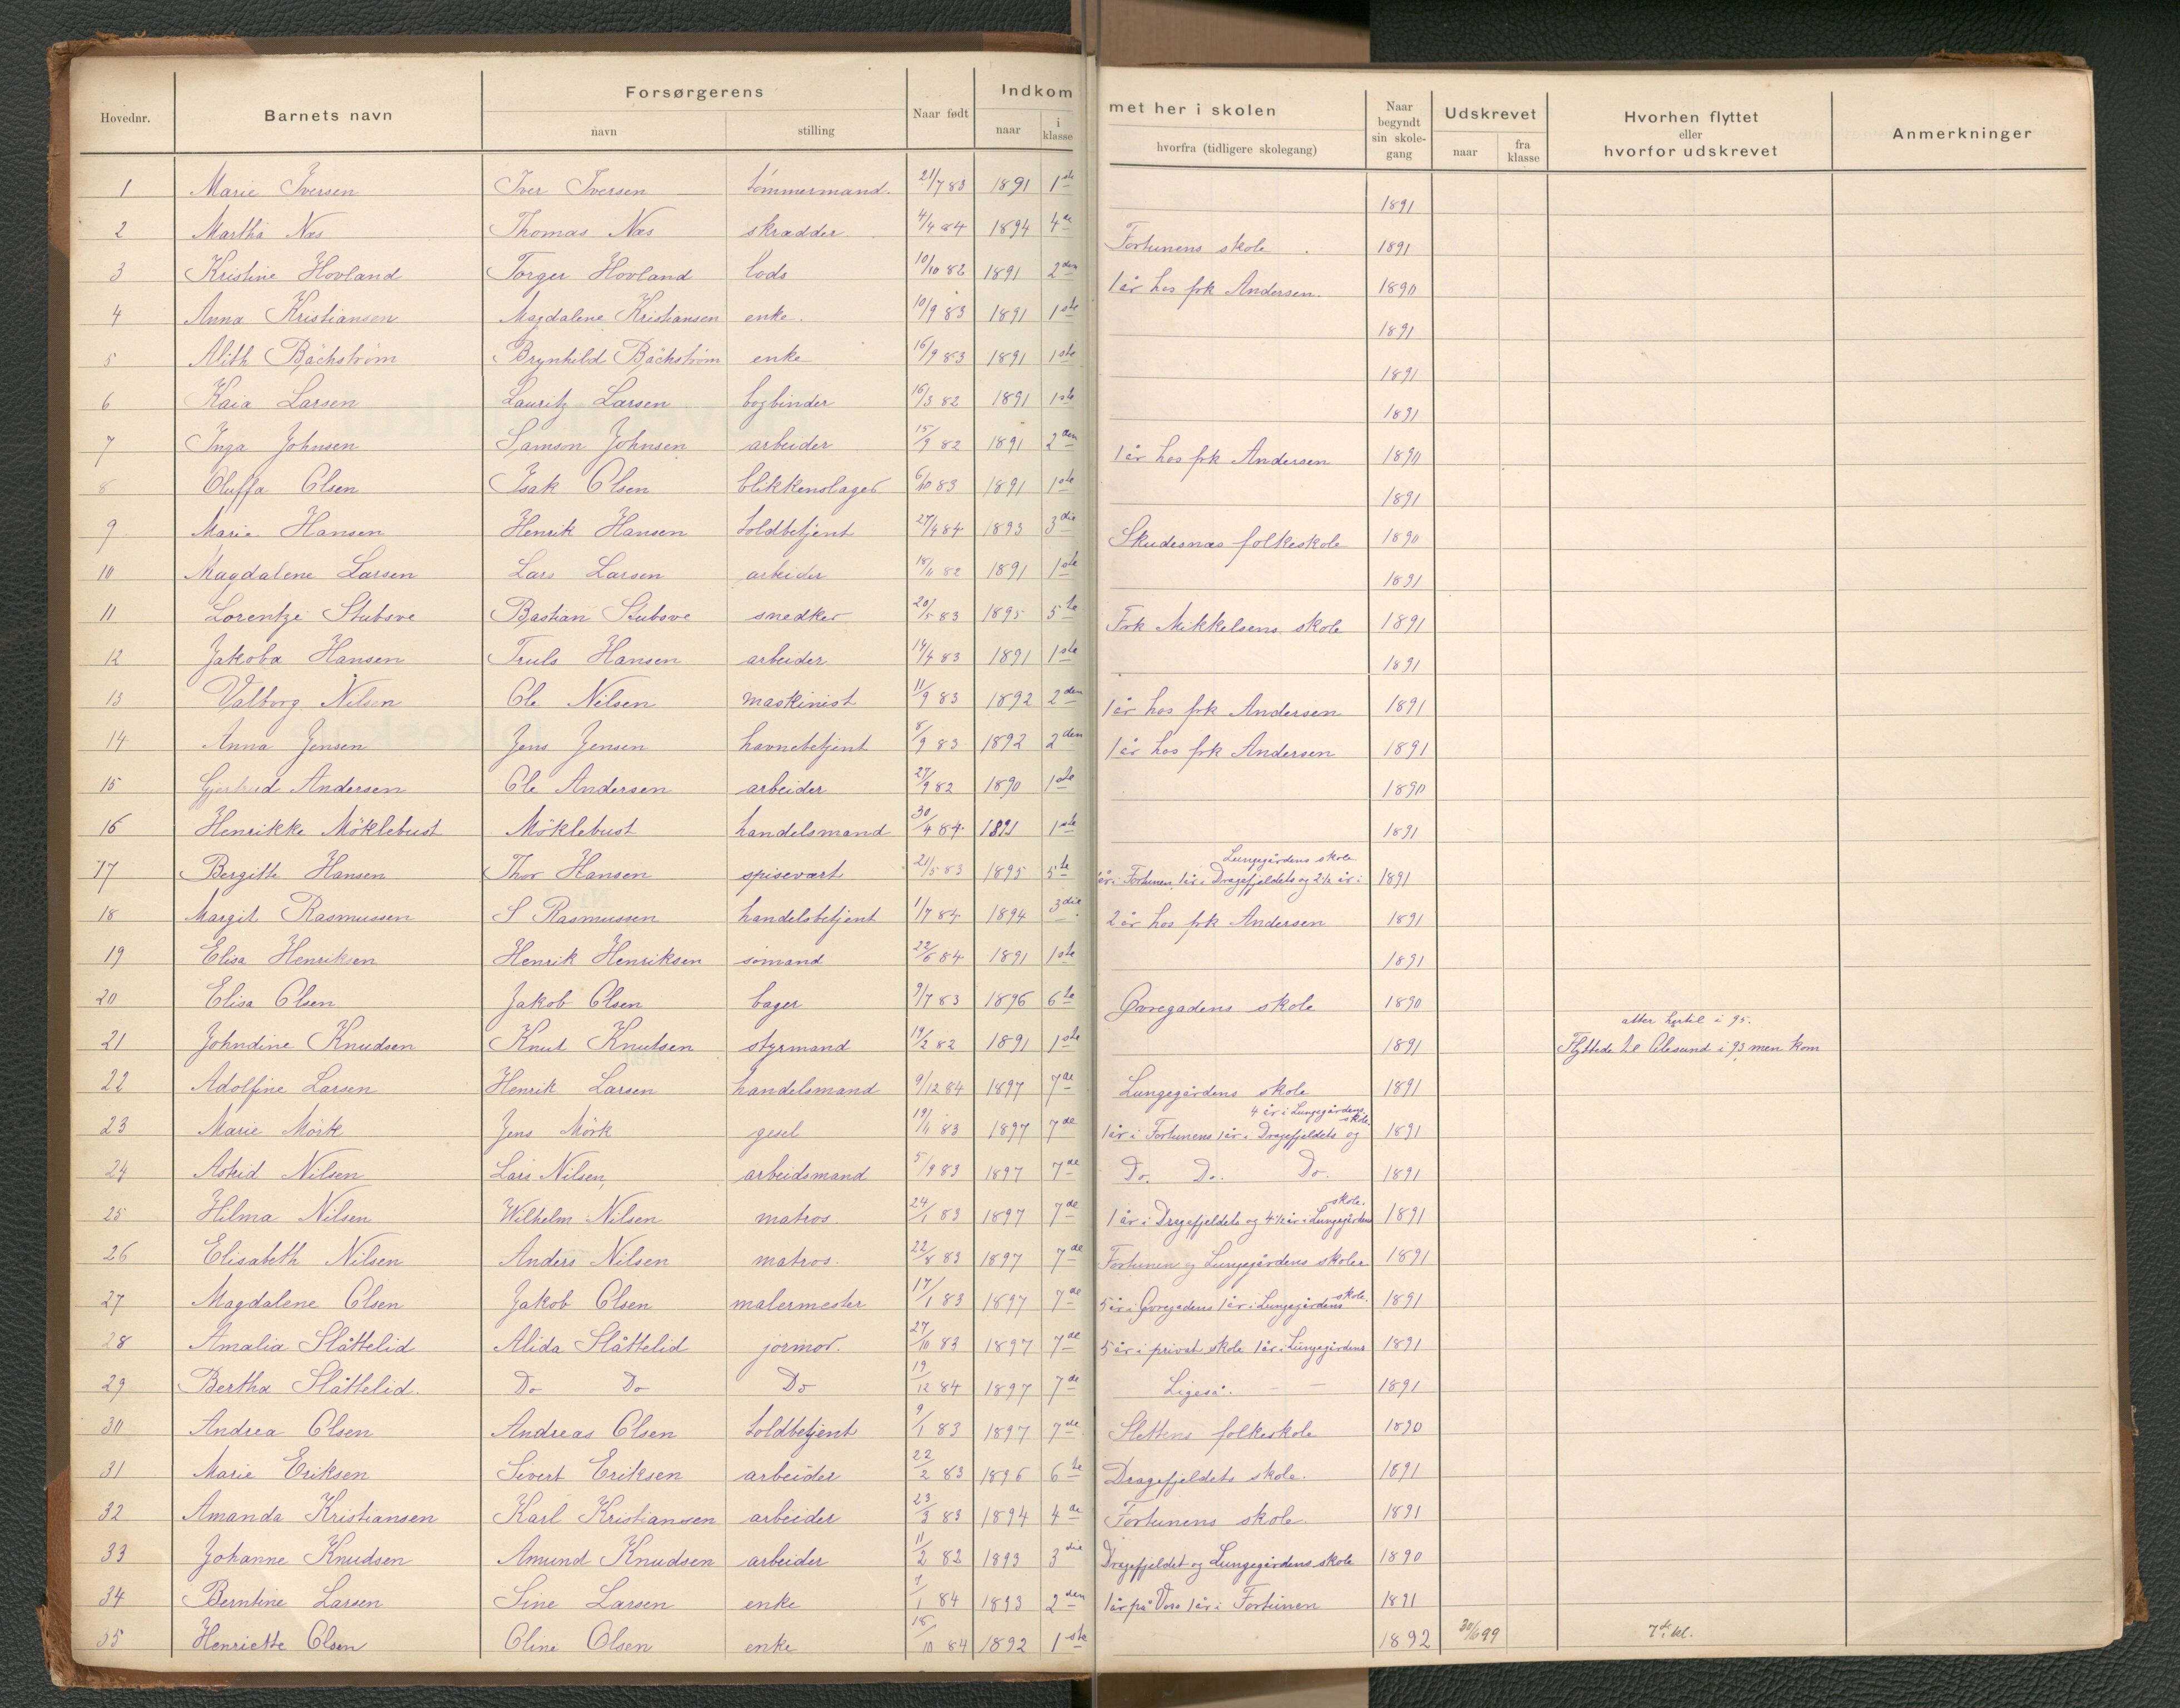 Hovednr. Barnets navn Forsørgerens navn stilling Naar født Indkommet her i skolen naar i klasse hvorfra (tidligere skolegang) Naar begyndt sin skolegang Udskrevet naar fra klasse Hvorhen flyttet eller hvorfor udskrevet Anmerkninger
1 Marie Iversen Iver Iversen tømmermand. 21/7 83 1891 1ste 1891
2 Martha Næs Thomas Næs skrædder 4/4 84 1894 4de Fortunens skole 1891
3 Kristine Hovland Torger Hovland lods 10/10 82 1891 2den 1 år hos frk Andersen. 1890
4 Anna Kristiansen Magdalene Kristiansen enke. 10/9 83 1891 1ste 1891
5 Alith Bäckstrøm Brynhild Bäckstrøm enke 16/9 83 1891 1ste 1891
6 Kaia Larsen Lauritz Larsen bogbinder 16/3 82 1891 1ste 1891
7 Inga Johnsen Samson Johnsen arbeider 15/9 82 1891 2den 1 år hos frk Andersen 1890
8 Oluffa Olsen Isak Olsen blikkenslager 6/10 83 1891 1ste 1891
9 Marie Hansen Henrik Hansen toldbetjent 27/4 84 1893 3die Skudesnæs folkeskole 1890
10 Magdalene Larsen Lars Larsen arbeider 18/11 82 1891 1ste 1891
11 Lorentze Stubsve Bastian Stubsve snedker 20/5 83 1895 5te Frk Mikkelsens skole 1891
12 Jakoba Hansen Truls Hansen arbeider 14/4 83 1891 1ste 1891
13 Valborg Nilsen Ole Nilsen maskinist 11/9 83 1892 2den 1 år hos frk Andersen 1891
14 Anna Jensen Jens Jensen havnebetjent 8/9 83 1892 2den 1 år hos frk Andersen 1891
15 Gjertrud Andersen Ole Andersen arbeider 27/9 82 1890 1ste 1890
16 Henrikke Möklebust Möklebust handelsmand 30/4 84 1891 1ste 1891
Lungegårdens skole
17 Bergitte Hansen Thor Hansen spisevært 21/5 83 1895 5te 1 år i Fortunen, 1 år i Dragefjeldets og 2 1/2 år i 1891
18 Margit Rasmussen S Rasmussen handelsbetjent 1/7 84 1894 3die. 2 år hos frk Andersen 1891
19 Elisa Henriksen Henrik Henriksen sömand 22/6 84 1891 1ste 1891
20 Elisa Olsen Jakob Olsen bager 9/7 83 1896 6te Øvregadens skole 1890
atter hertil i 95.
21 Johndine Knudsen Knut Knutsen styrmand 19/2 82 1891 1ste 1891 Flyttede til Ålesund i 93 men kom
22 Adolfine Larsen Henrik Larsen handelsmand 9/12 84 1897 7de Lungegårdens skole 1891
4 år i Lungegårdens skole
23 Marie Mörk Jens Mörk gesel 19/11 83 1897 7de 1 år i Fortunens 1 år i Dragefjeldets og 1891
24 Astrid Nilsen Lars Nilsen, arbeidsmand 5/9 83 1897 7de Do. Do. Do. 1891
skole.
25 Hilma Nilsen Wilhelm Nilsen matros. 24/1 83 1897 7de 1 år i Dragefjeldets og 4 1/2 år i Lungegårdens 1891
26 Elisabeth Nilsen Anders Nilsen matros. 22/8 83 1897 7de Fortunen og Lungegårdens skoler 1891
27 Magdalene Olsen Jakob Olsen malermester 17/1 83 1897 7de 5 år i Øvregadens 1 år i Lungegårdens skole. 1891
28 Amalia Slåttelid Alida Slåttelid jormor. 27/10 83 1897 7de 5 år i privat skole 1 år i Lungegårdens 1891
29 Bertha Slåttelid. Do Do Do 19/12 84 1897 7de Ligeså. – – 1891
30 Andrea Olsen Andreas Olsen toldbetjent 9/1 83 1897 7de. Slettens folkeskole 1890
31 Marie Eriksen Sivert Eriksen arbeider 22/2 83 1896 6te Dragefjeldets skole. 1891
32 Amanda Kristiansen Karl Kristiansen arbeider 23/3 83 1894 4de Fortunens skole. 1891
33 Johanne Knudsen Amund Knudsen arbeider 11/2 82 1893 3die Dragefjeldet og Lungegårdens skole 1890
34 Berntine Larsen Sine Larsen enke 1/1 84 1893 2den 1 år på Voss 1 år i Fortunen 1891
35 Henriette Olsen Oline Olsen enke 18/10 84 1892 1ste 1892 30/6 99 7de kl.